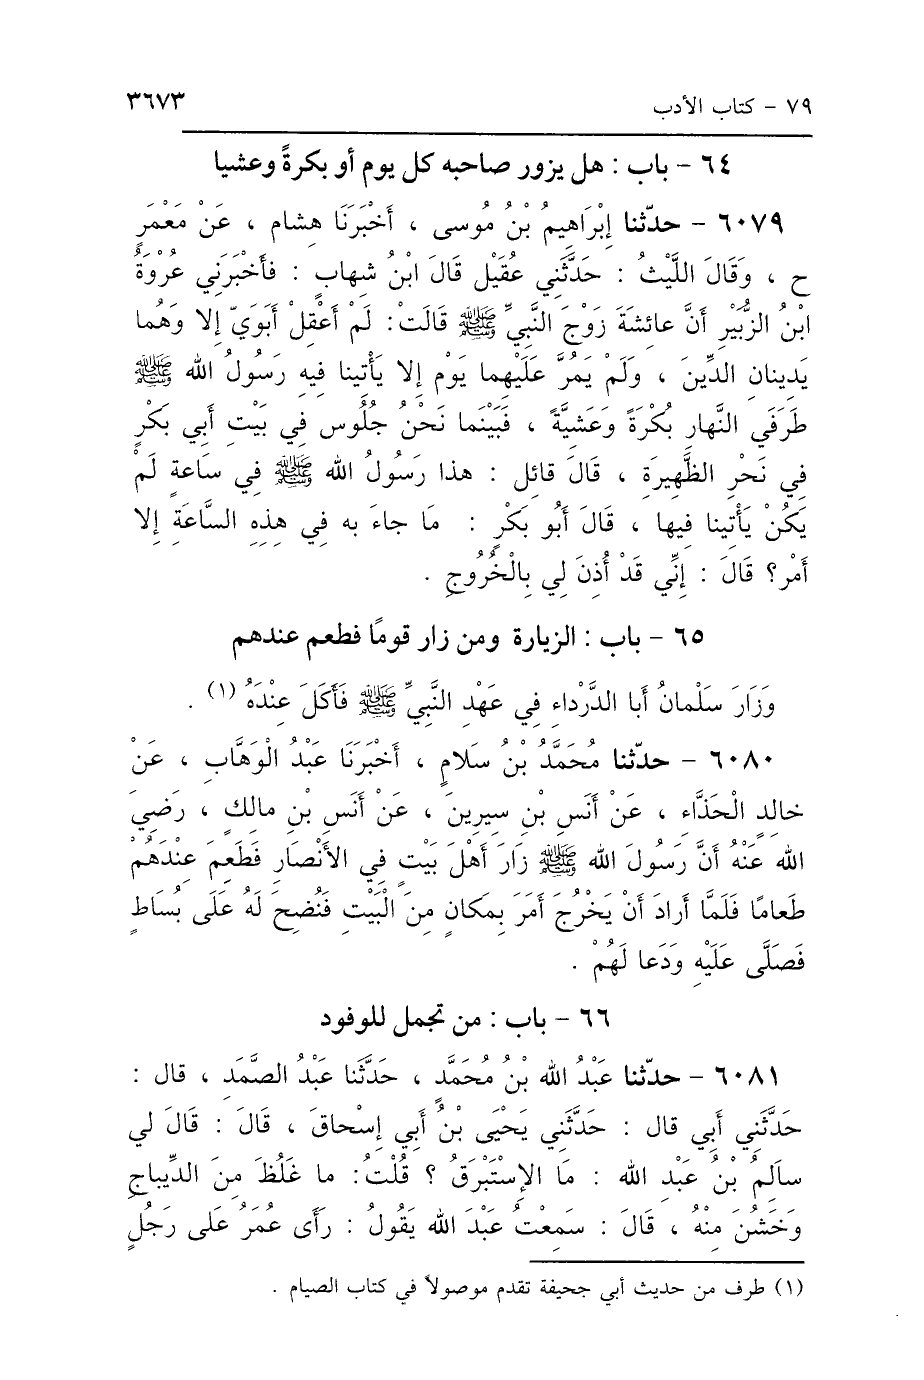 ٧٩ - كتاب الأدب ٣٦٧٣
٦٤ - باب : هل يزور صاحبه كل يوم أو بكرةً وعشيا
٦٠٧٩ - حدّثنا إِبْرَاهِيمُ بْنُ مُوسى ، أَخْبَرَنَا هشام ، عَنْ مَعْمَرٍ
ح ، وَقَالَ اللَّيْثُ : حَدَّثَنِي عُقَيْل قَالَ ابْنُ شهابٍ : فأَخْبَرَنِي عُرْوَةُ
ابْنُ الزُّبَيْرِ أَنَّ عائشَةَ زَوْجَ النَّبيِّ ﷺ قَالَتْ: لَمْ أَعْقِلْ أَبَوَيّ إلا وَهُما
يَدينان الدِّينَ ، وَلَمْ يَمُرَّ عَلَيْهِما يَوْم إلا يَأْتِينا فيهِ رَسُولُ الله ﷺ
طَرَفَي النَّهارِ بُكْرَةً وَعَشيَّةً ، فَبَيْنَما نَحْنُ جُلُوس فِي بَيْتِ أَبي بَكْرٍ
فِي نَحْرِ الظَّهِيرَةِ ، قَالَ قائل : هذا رَسُولُ الله ﷺ فِي سَاعَةٍ لَمْ
يَكُنْ يَأْتِينا فيها ، قَالَ أَبُو بَكْرٍ : مَا جاءَ به فِي هذِهِ السَّاعَةِ إلا
أَمْر؟ قَالَ : إِنِّي قَدْ أُذِنَ لِي بِالْخُرُوجِ .
٦٥ - باب : الزيارة ومن زار قومًا فطعم عندهم
وَزَارَ سَلْمانُ أبا الدَّرْداءِ فِي عَهْدِ النَّبيِّ ﷺ فَأَكَلَ عِنْدَهُ (١) .
٦٠٨٠ - حدّثنا مُحَمَّدُ بْنُ سَلامٍ ، أَخْبَرَنَا عَبْدُ الْوَهَّابِ ، عَنْ
خالِدٍ الْحَذَّاءِ ، عَنْ أَنَسِ بْنِ سيرينَ ، عَنْ أَنَسِ بْنِ مالكٍ ، رَضيَ
الله عَنْهُ أَنَّ رَسُولَ الله ﷺ زَارَ أَهْلَ بَيْتٍ فِي الأَنْصَارِ فَطَعِمَ عِنْدَهُمْ
طَعاما فَلَمَّا أَرادَ أَنْ يَخْرُجَ أَمَرَ بِمَكانٍ مِنَ الْبَيْتِ فَنُضحَ لَهُ عَلَى بُسَاطٍ
فَصَلَّى عَلَيْهِ وَدَعا لَهُمْ .
٦٦ - باب : من تجمل للوفود
٦٠٨١ - حدّثنا عَبْدُ الله بْنُ مُحَمَّدٍ ، حَدَّثَنا عَبْدُ الصَّمَدِ ، قال :
حَدَّثَنِي أَبي قال : حَدَّثَنِي يَحْيَى بْنُ أَبي إِسْحاقَ ، قَالَ : قَالَ لي
سالِمُ بْنُ عَبْدِ الله : مَا الإِسْتَبْرَقُ ؟ قُلْتُ: ما غَلُظَ مِنَ الدِّيباجِ
وَخَشُنَ مِنْهُ ، قَالَ : سَمِعْتُ عَبْدَ الله يَقُولُ : رَأَى عُمَرُ عَلى رَجُلٍ
(١) طرف من حديث أبي جحيفة تقدم موصولاً في كتاب الصيام .